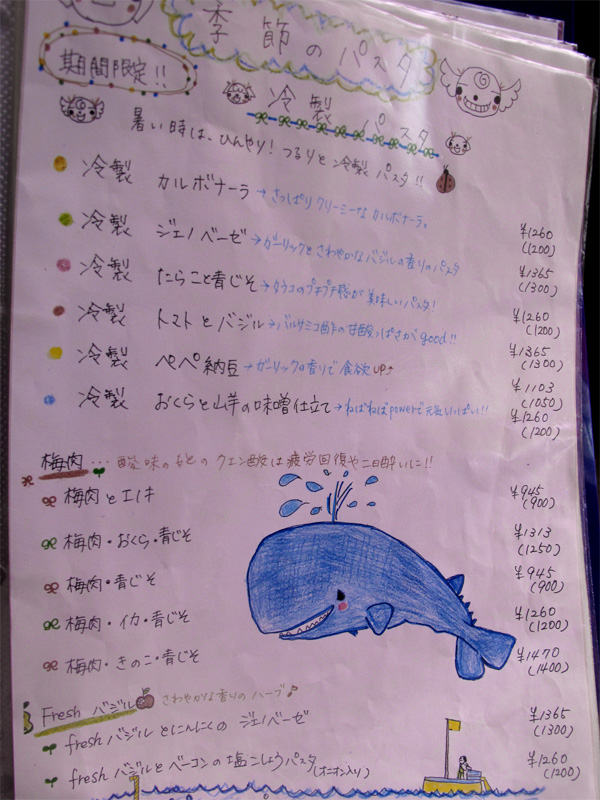 季節のパスタ
期間限定!!
冷製パスタ
暑い時は、ひんやり!つるりと冷製パスタ!!
冷製 カルボナーラ→さっぱりクリーミーなカルボナーラ。 ¥1260 (1200)
冷製 ジェノベーゼ→ガーリックとさわやかなバジルの香りのパスタ ¥1365 (1300)
冷製 たらこと青じそ→タラコのプチプチ感が美味しいパスタ! ¥1260 (1200)
冷製 トマトとバジル→バルサミコ酢の甘酸っぱさがgood!! ¥1365 (1300)
冷製 ペペ納豆→ガーリックの香りで食欲UP↑ ¥1103 (1050)
冷製 おくらと山芋の味噌仕立て→ねばねばpowerで元気いっぱい!! ¥1260 (1200)
梅肉…酸味のもとのクエン酸は疲労回復や二日酔いに!!
梅肉とエノキ ¥945 (900)
梅肉・おくら・青じそ ¥1313 (1250)
梅肉・青じそ ¥945 (900)
梅肉・イカ・青じそ ¥1260 (1200)
梅肉・きのこ・青じそ ¥1470 (1400)
Fresh バジル さわやかな香りのハーブ♪
fresh バジルとにんにくの ジェノベーゼ ¥1365 (1300)
fresh バジルとベーコンの塩こしょうパスタ(オニオン入り) ¥1260 (1200)